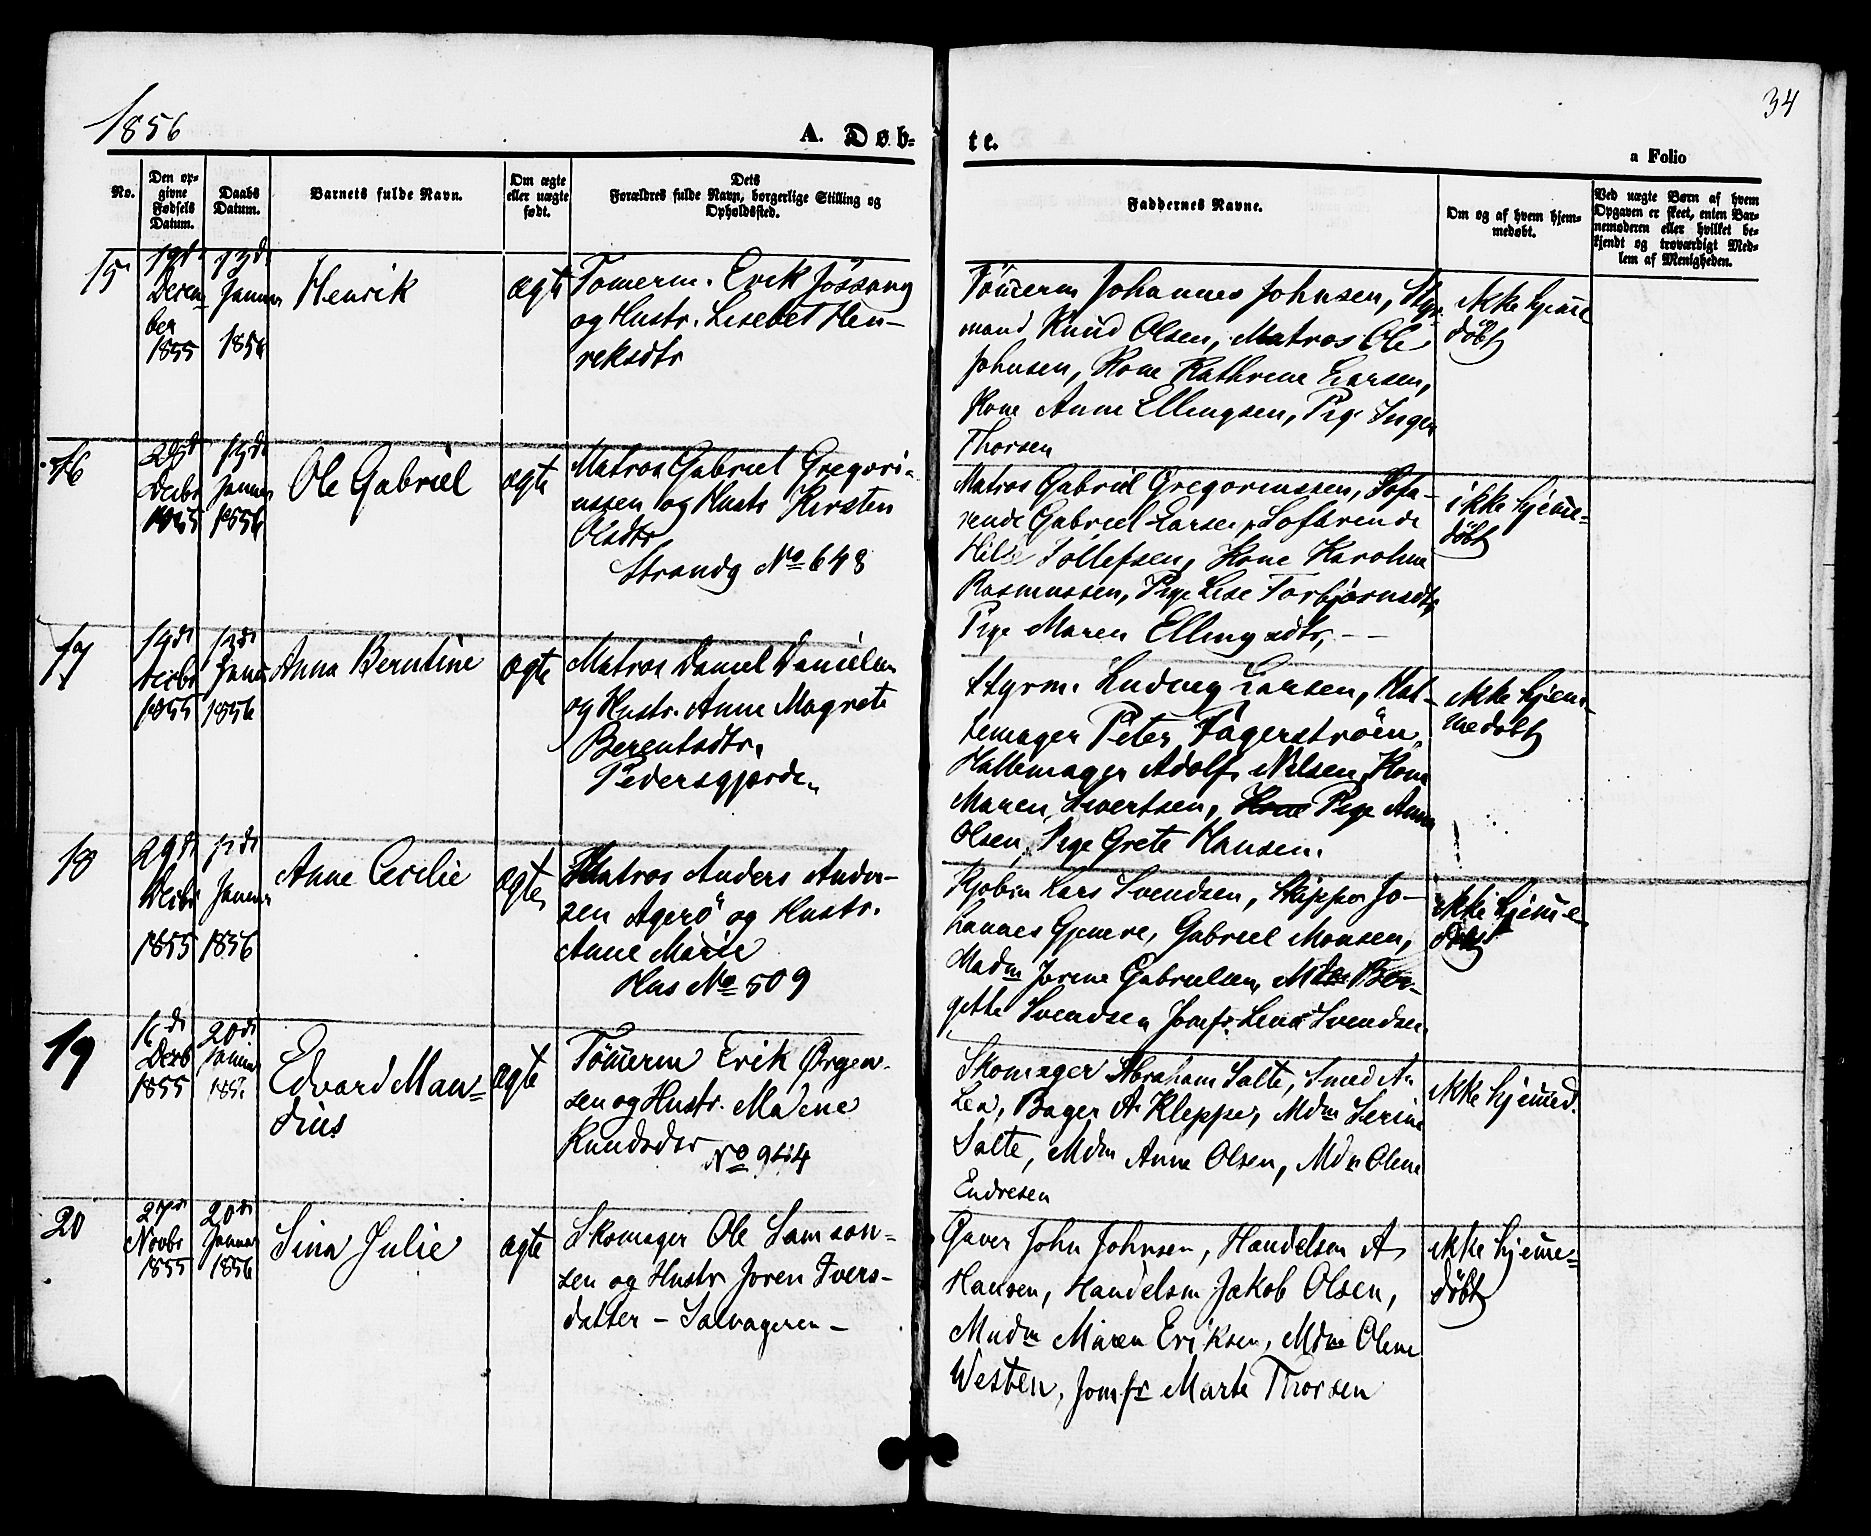 1856
34
A. Døb-
te.
a Folio
No.
Den op-
givne
Fødsels
Datum.
Daabs
Datum.
Barnets fulde Navn.
Om ægte
eller uægte
født.
Dets
Forældres fulde Navn, borgerlige Stilling og
Opholdssted.
Faddernes Navne.
Om og af hvem hjem-
medøbt.
Ved uægte Børn af hvem
Opgaven er skeet, enten Bar-
nemoderen eller hvilket be-
kjendt og troværdigt Med-
lem af Menigheden.
15
19de
Decem
ber
1855
13de
Januar
1856
Henrik
ægte
Tømerm. Erik Jössang
og Hustr. Lisebet Hen-
reksdtr
Tömerm Johannes Johnsen, Styr
mand Knud Olsen, Matros Ole
Johnsen, Kone Kathrine Larsen,
Kone Anne Ellingsen, Pige Inger
Thorsen
ikke hjeme
döbt
16
Decbr
1855
13de
Januar
1856
Ole Gabriel
ægte
Matros Gabriel Gregori-
ussen og Hustr Kirsten
Olsdtr
Strandg No 648
Matros Gabriel Gregoriussen, Sofa-
rende Gabriel Larsen, Sofarende
Tollefsen, Kone Karoline
Rasmussen, Pige Lise Torbjørnsdtr,
Pige Maren Ellingsdtr, --
ikke hjeme-
döbt
17
14de
Decbr
1855
13de
Januar
1856
Anna Berntine
ægte
Matros Daniel Danielsen
og Hustr. Anne Magrete
Berentsdtr.
Pedersgjerde.
Styrm. Ludvig Larsen, Hat-
temager Peter Fagerström,
Hattemager Adolf Nilsen, Kone
Maren Sivertsen, Pige Anna
Olsen, Pige Grete Hansen.
ikke hjem-
medøbt
18
29de
Decbr
1855
13de
Januar
1856
Anne Cecilie
ægte
Matros Anders Ander-
sen Agerö og Hustr.
Anne Marie
Hus No 509
Kjøbm Lars Svendsen, Skipper Jo-
hannes Gjemre, Gabriel Monsen,
Madm Jorine Gabrielsen, Mdm Ber-
gitte Svendsen Jomfr. Lena Svendsen
ikke hjeme
døbt
19
16de
Decb
1855
20de
Januar
Edvard Man-
dius
ægte
Tömerm Erik Ørgen-
sen og Hustr. Malene
Knudsdtr No 944
Skomager Abraham Salte, Smed A.
Lea, Bager A. Klepper, Mdm Serine
Salte, Mdm Anne Olsen, Mdm Oline
Endresen
ikke hjemed.
20
27de
Novbr
1855
20de
Januar
1856
Sina Julie
ægte
Skomager Ole Samson-
sen og Hustr Joren Ivers-
datter - Solvageren -
Garver John Johnsen, Handelsm A
Hansen, Handelsm Jakob Olsen,
Madm Maren Eriksen, Mdm Oline
Westen, Jomfr Marte Thorsen
ikke hjeme-
döbt